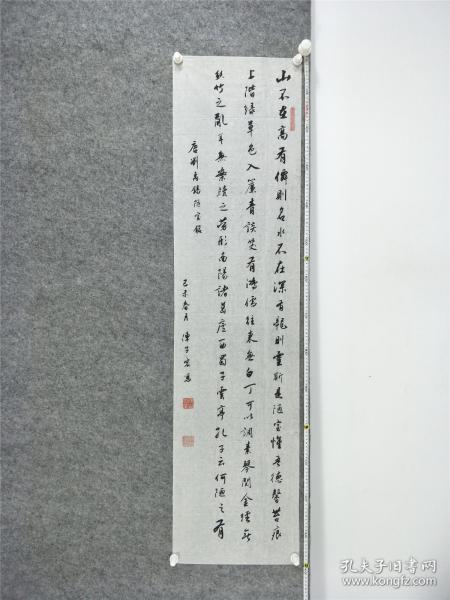 山不在高有僊則名水不在深有龍則靈斯是陋室惟吾德馨苔痕
上階綠草色入簾青談笑有鴻儒往來無白丁可以調素琴閱金經無
絲竹之亂耳無案牘之勞形南陽諸葛廬西蜀子雲亭孔子云何陋之有
唐劉禹錫陋室銘
己未春月
孔夫子旧书网
www.kongfz.com